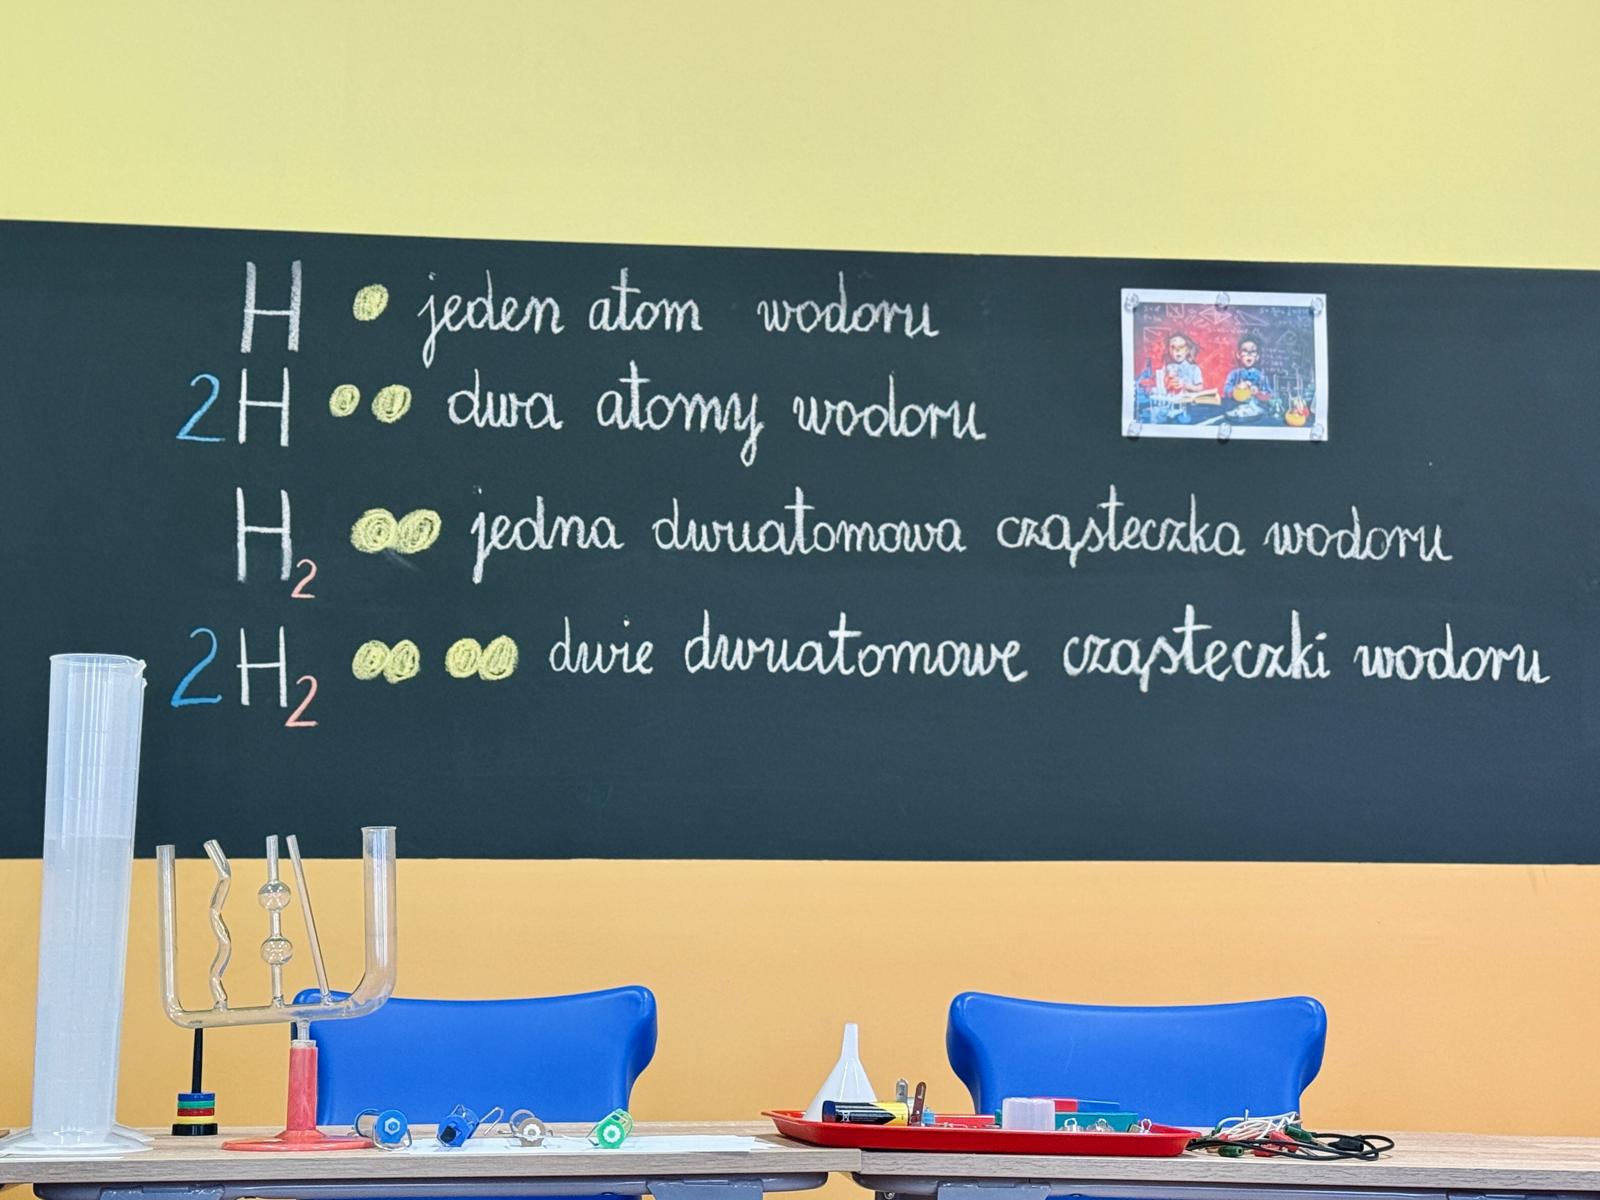 H jeden atom wodoru
2H dwa atomy wodoru
H₂ jedna dwuatomowa cząsteczka wodoru
2H₂ dwie dwuatomowe cząsteczki wodoru